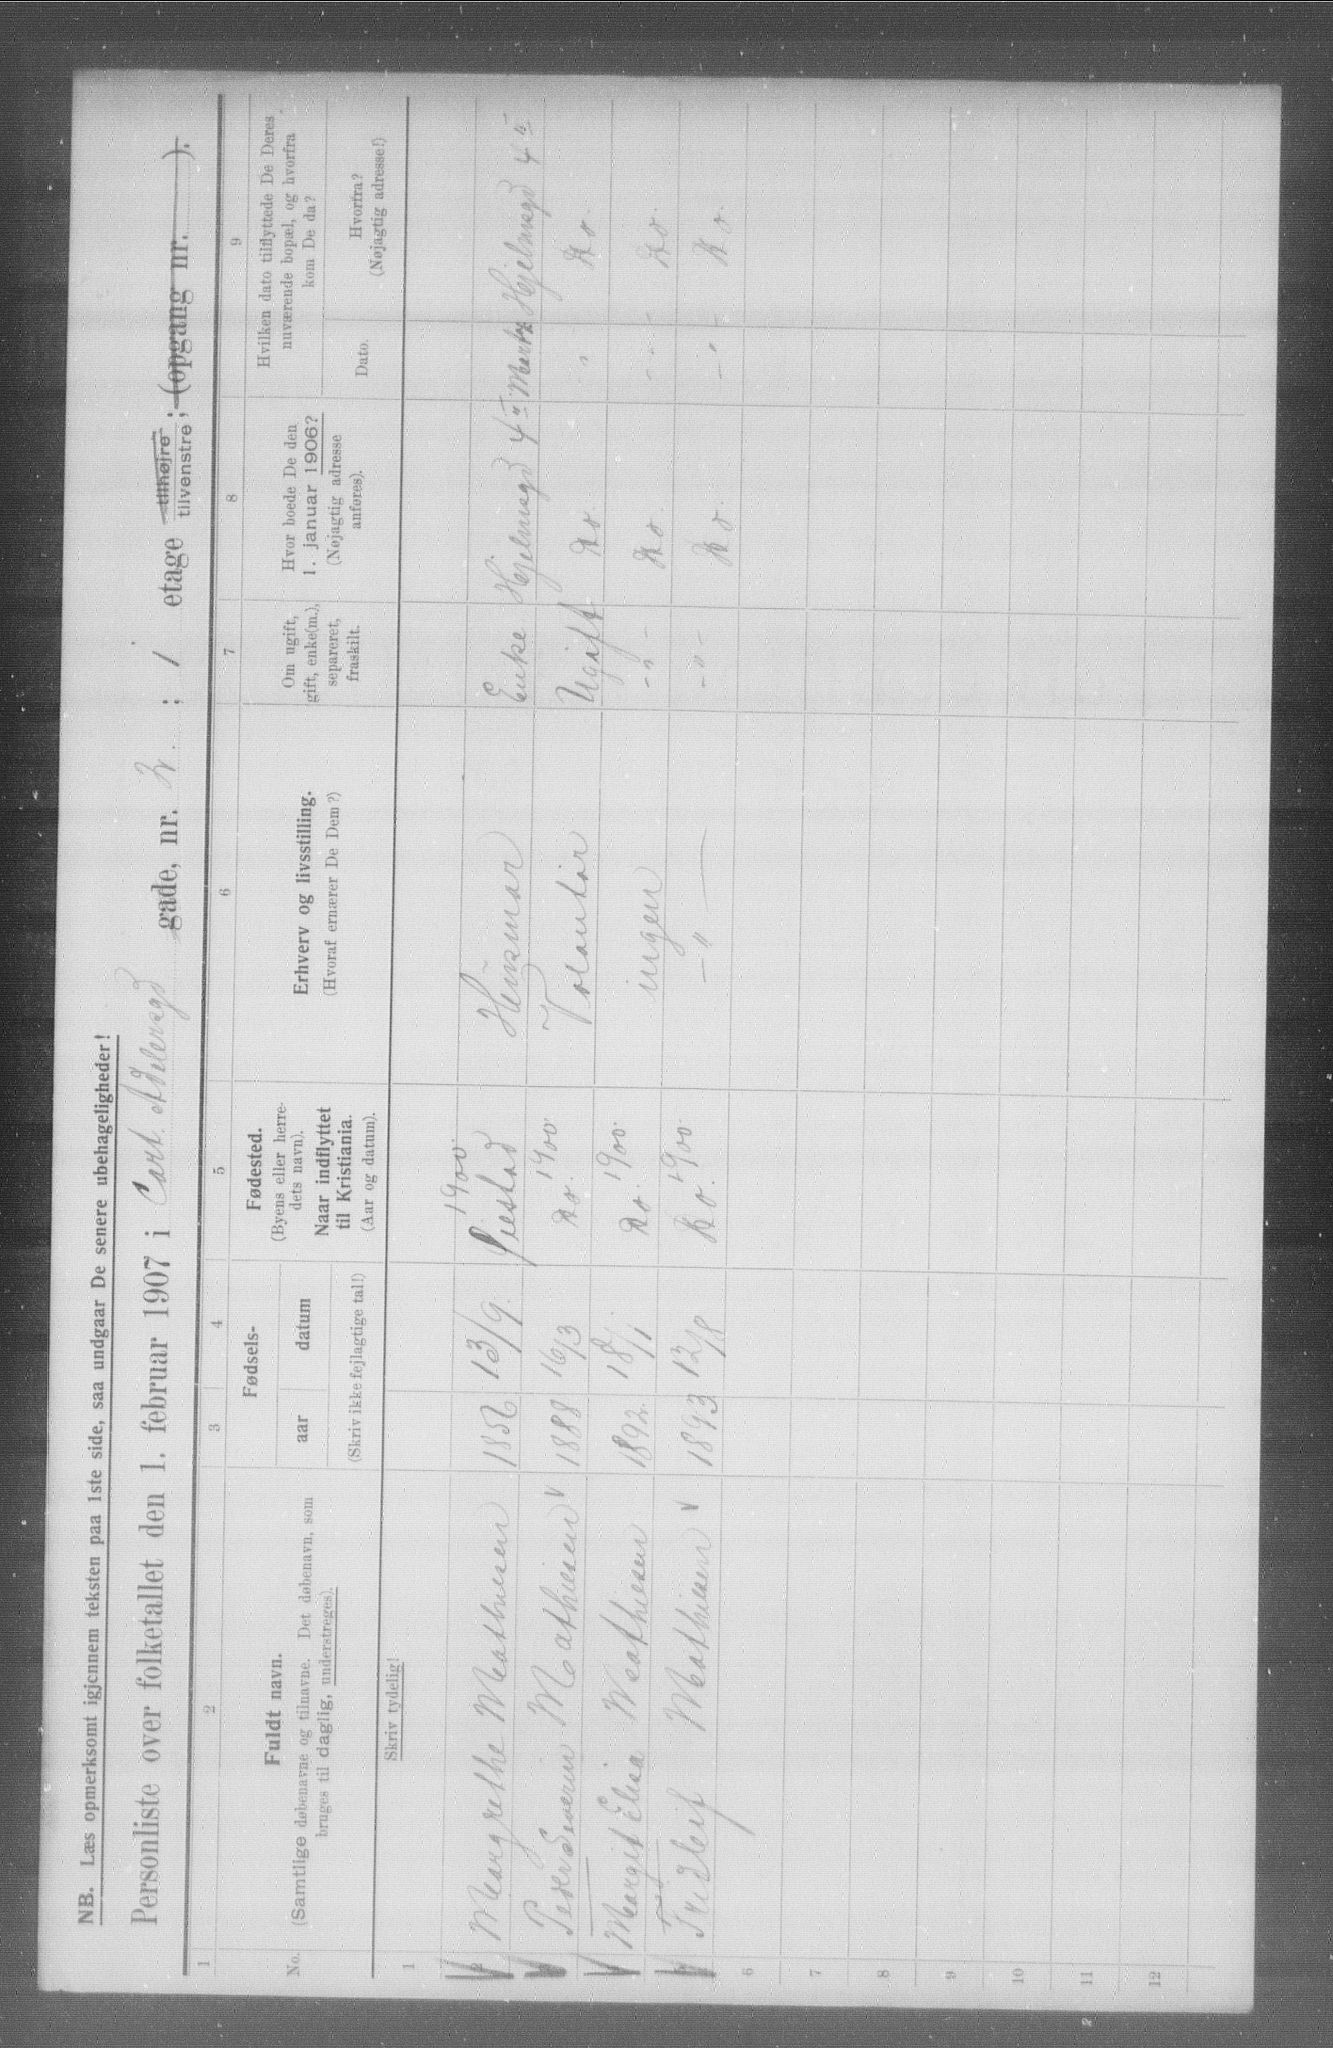 NB. Læs opmerksomt igjennem teksten paa 1ste side, saa undgaar De senere ubehageligheder!
Personliste over folketallet den 1. februar 1907 i Cort. Adelersgd gade, nr. ; 1 etage tilhøjre tilvenstre; (opgang nr. ).
1 2 3 4 5 6 7 8 9
No.
Fuldt navn.
(Samtlige døbenavne og tilnavne. Det døbenavn, som
bruges til daglig, understreges).
Fødsels-
aar datum
(Skriv ikke fejlagtige tal!)
Fødested.
(Byens eller herre-
dets navn).
Naar indflyttet
til Kristiania.
(Aar og datum).
Erhverv og livsstilling.
(Hvoraf ernærer De Dem?)
Om ugift,
gift, enke(m.),
separeret,
fraskilt.
Hvor boede De den
1. januar 1906?
(Nøjagtig adresse
anføres).
Hvilken dato tilflyttede De Deres
nuværende bopæl, og hvorfra
kom De da?
Dato.
Hvorfra?
(Nøjagtig adresse!)
Skriv tydelig!
1
2 Margrethe Mathiesen 1856 13/9. 1900. Husmor Enke Hjelmsgd 4 Marts Hjelmsgd 4
3 Mathiesen 1888 16/3 Do. 1900. Volontør Ugift Do. " Do.
4 Margit Elisa Mathiesen 1892 18/1 Do. 1900. ingen - " - Do. - " - Do.
5 Fridleif Mathiesen 1893 12/8 Do. 1900. - " - - " - Do. - " - Do.
6
7
8
9
10
11
12